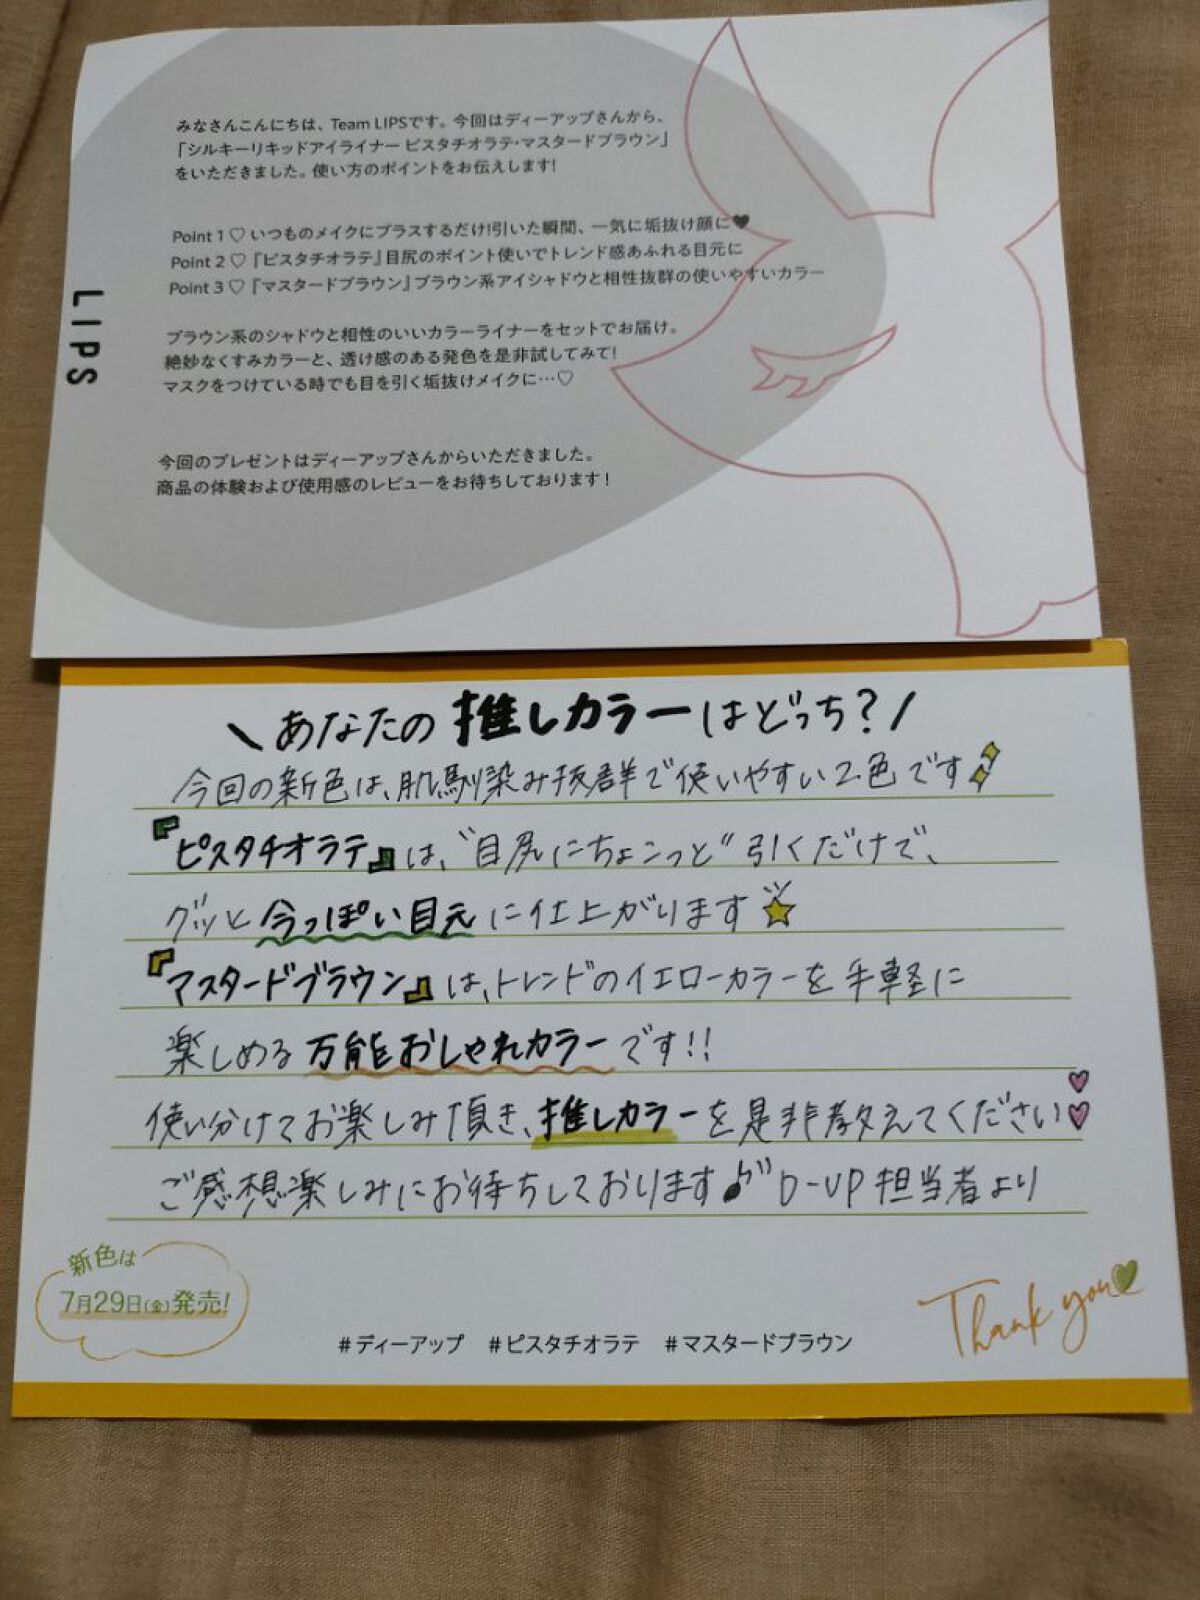 みなさんこんにちは、Team LIPSです。今回はディーアップさんから、
「シルキーリキッドアイライナー ピスタチオラテ・マスタードブラウン」
をいただきました。使い方のポイントをお伝えします!
Point 1 ♡ いつものメイクにプラスするだけ!引いた瞬間、一気に垢抜け顔に♥
Point 2 ♡『ピスタチオラテ』目尻のポイント使いでトレンド感あふれる目元に
Point 3 ♡『マスタードブラウン』ブラウン系アイシャドウと相性抜群の使いやすいカラー
LIPS
ブラウン系のシャドウと相性のいいカラーライナーをセットでお届け。
絶妙なくすみカラーと、透け感のある発色を是非試してみて!
マスクをつけている時でも目を引く垢抜けメイクに…♡
今回のプレゼントはディーアップさんからいただきました。
商品の体験および使用感のレビューをお待ちしております!
\あなたの推しカラーはどっち?/
今回の新色は、肌馴染み抜群で使いやすい2色です
『ピスタチオラテ』は、“目尻にちょこっと”引くだけで、
グッと今っぽい目元に仕上がります
『マスタードブラウン』は、トレンドのイエローカラーを手軽に
楽しめる万能おしゃれカラーです!!
使い分けてお楽しみ頂き、推しカラーを是非教えてください
ご感想楽しみにお待ちしております♪ D-UP担当者より
新色は
7月29日(金)発売!
Thank you
#ディーアップ #ピスタチオラテ #マスタードブラウン